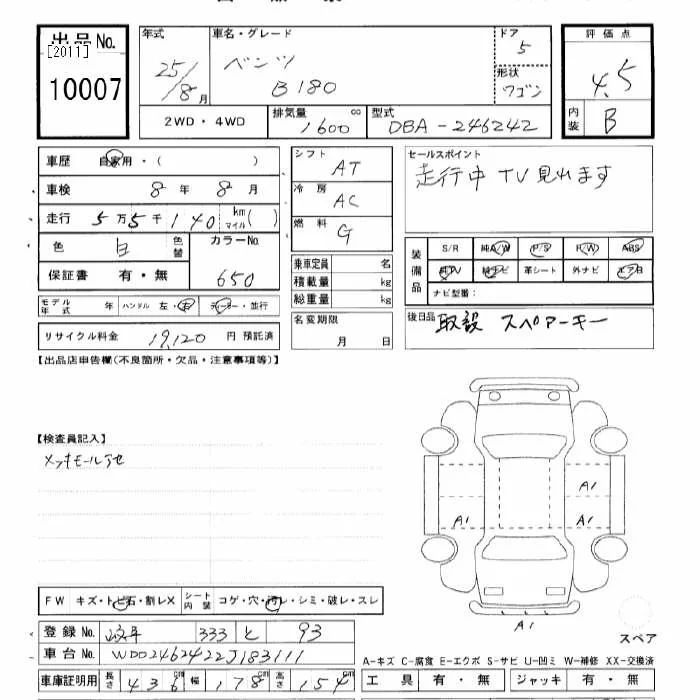 出品No.
[2011]
10007
年式 25/8月
車名・グレード ベンツ B180
ドア 5
形状 ワゴン
評価点 4.5
内装 B
2WD・4WD 排気量 1600 cc 型式 DBA-246242
車歴 自家用・( )
車検 8年 8月
走行 5万5千140 km マイル( )
色 白 色替 カラーNo. 650
保証書 有・無
モデル年式 年 ハンドル 左・右 ディーラー・並行
リサイクル料金 19,120 円 預託済
シフト AT
冷房 AC
燃料 G
乗車定員 名
積載量 kg
総重量 kg
名変期限 月 日
セールスポイント
走行中 TV見れます
装備品 S/R 純A/W P/S P/W ABS
純TV 純ナビ 革シート 外ナビ エアB
ナビ型番:
後日品 取説 スペアーキー
【出品店申告欄(不良箇所・欠品・注意事項等)】
【検査員記入】
メッキモールアセ
A1
A1
A1
A1
スペア
FW キズ・トビ石・割レX シート内装 コゲ・穴・汚レ・シミ・破レ・スレ
登録No. 333 と 93
車台No. WDD2462422J183111
車庫証明用 長さ 436cm 幅 178cm 高さ 154cm
A-キズ C-腐食 E-エクボ S-サビ U-凹ミ W-補修 XX-交換済
工具 有・無 ジャッキ 有・無